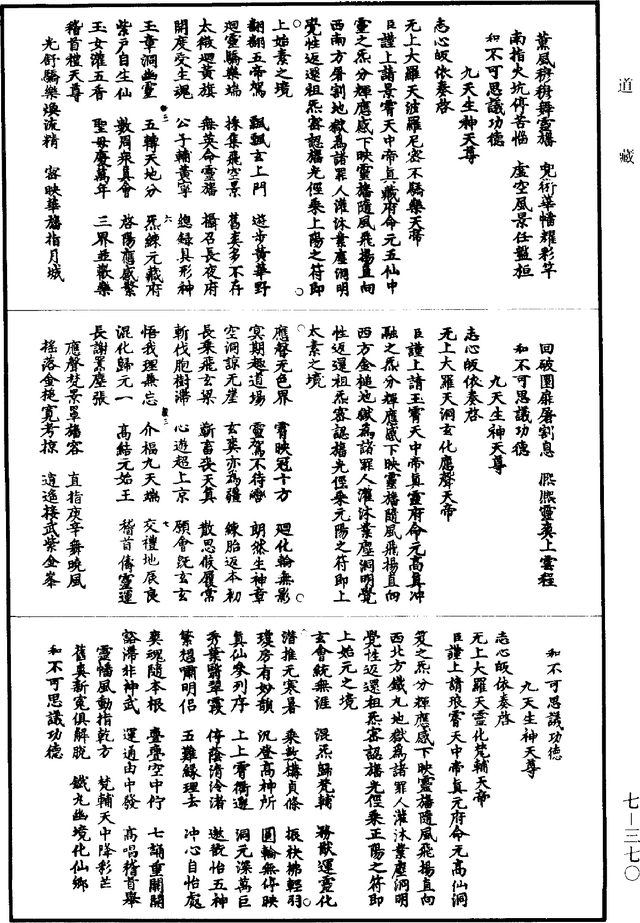 道藏
薰風穆穆舞靈旛　兜術華幡耀彩竿
南指火坑停苦惱　虛空風景任盤桓
和不可思議功德
九天生神天尊
志心皈依奏啓
无上大羅天波羅尼密不驕樂天帝
臣謹上請景霄天中帝真藏府命元五仙中
靈之炁分輝應感下映靈旛隨風飛揚直向
西南方屠割地獄爲諸罪人灌沐業塵洞明
覺性返還祖炁密認旛光徑乘上陽之符即
上始素之境
翩翩五帝駕　飄飄玄上門　遊步黃華野
迴靈驕樂端　採集飛空景　舊妻多不存
太微迴黃旗　無英命靈旛　攝召長夜府
開度受生魂　公子輔黃寧　總錄具形神
玉章洞幽靈　五轉天地分　炁練元藏府
紫戶自生仙　數周衆真會　啓陽應感繁
玉女灌五香　聖母慶萬年　三界並歡樂
稽首禮天尊
光舒驕樂煥流精　密映華旛指月城
回破圜扉屠割息　熙熙靈爽上雲程
和不可思議功德
九天生神天尊
志心皈依奏啓
无上大羅天洞玄化應聲天帝
臣謹上請玉霄天中帝真靈府命元高真冲
融之炁分輝應感下映靈旛隨風飛揚直向
西方金槌地獄爲諸罪人灌沐業塵洞明覺
性返還祖炁密認旛光徑乘元陽之符即上
太素之境
應聲无色界　霄映冠十方　迴化輪無影
冥期趣道場　靈駕不待轡　朗然生神章
空洞諒无崖　玄爽亦爲疆　練胎返本初
長乘飛玄梁　蔪畜喪天真　散思候履常
斬伐胞樹滯　心遊超上京　願會旣玄玄
悟我理兼忘　介福九天端　交禮地辰良
混化歸元一　高結元始王　稽首儔靈運
長謝囂塵張
應聲梵景罩旛容　直指庚辛舞曉風
搖落金槌寬考掠　逍遙接武紫金峯
和不可思議功德
九天生神天尊
志心皈依奏啓
无上大羅天靈化梵輔天帝
臣謹上請琅霄天中帝真元府命元高仙洞
笈之炁分輝應感下映靈旛隨風飛揚直向
西北方鐵丸地獄爲諸罪人灌沐業塵洞明
覺性返還祖炁密認旛光徑乘正陽之符即
上始元之境
玄會統無涯　混炁歸梵輔　務猷運靈化
潛推元寒暑　乘數構貞條　振袂拂輕羽
瓊房有妙韻　沉登高神所　圓輪無停映
真仙參列序　上上霄衢邃　洞元深萬巨
秀葉翳翠霞　停蔭清泠渚　遨戲怡五神
繁想嘯明侶　五難緣理去　沖心自怡處
爽魂隨本根　亹亹空中佇　七誦重關開
豁滯非神武　運通由中發　高唱稽首舉
靈幡風動指乾方　梵輔天中降彩芒
舊爽新冤俱解脫　鐵丸幽境化仙鄉
和不可思議功德
七－三七〇